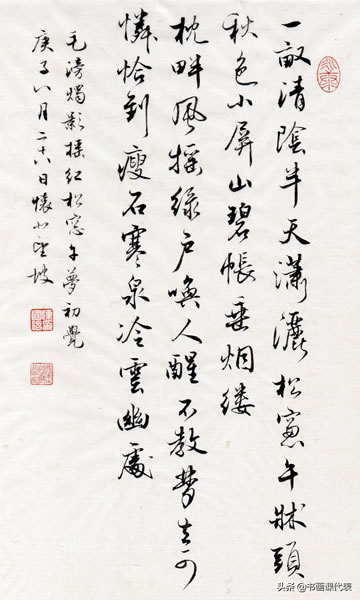 一畝清陰半天瀟灑松窓午牀頭
秋色小屏山碧帳垂烟缕
枕畔風摇綠户唤人醒不教夢去可
憐恰到瘦石寒泉冷雲幽處
毛滂燭影摇红松窓午夢初覺
庚子八月二十八日懷坡
头条 @书画课代表